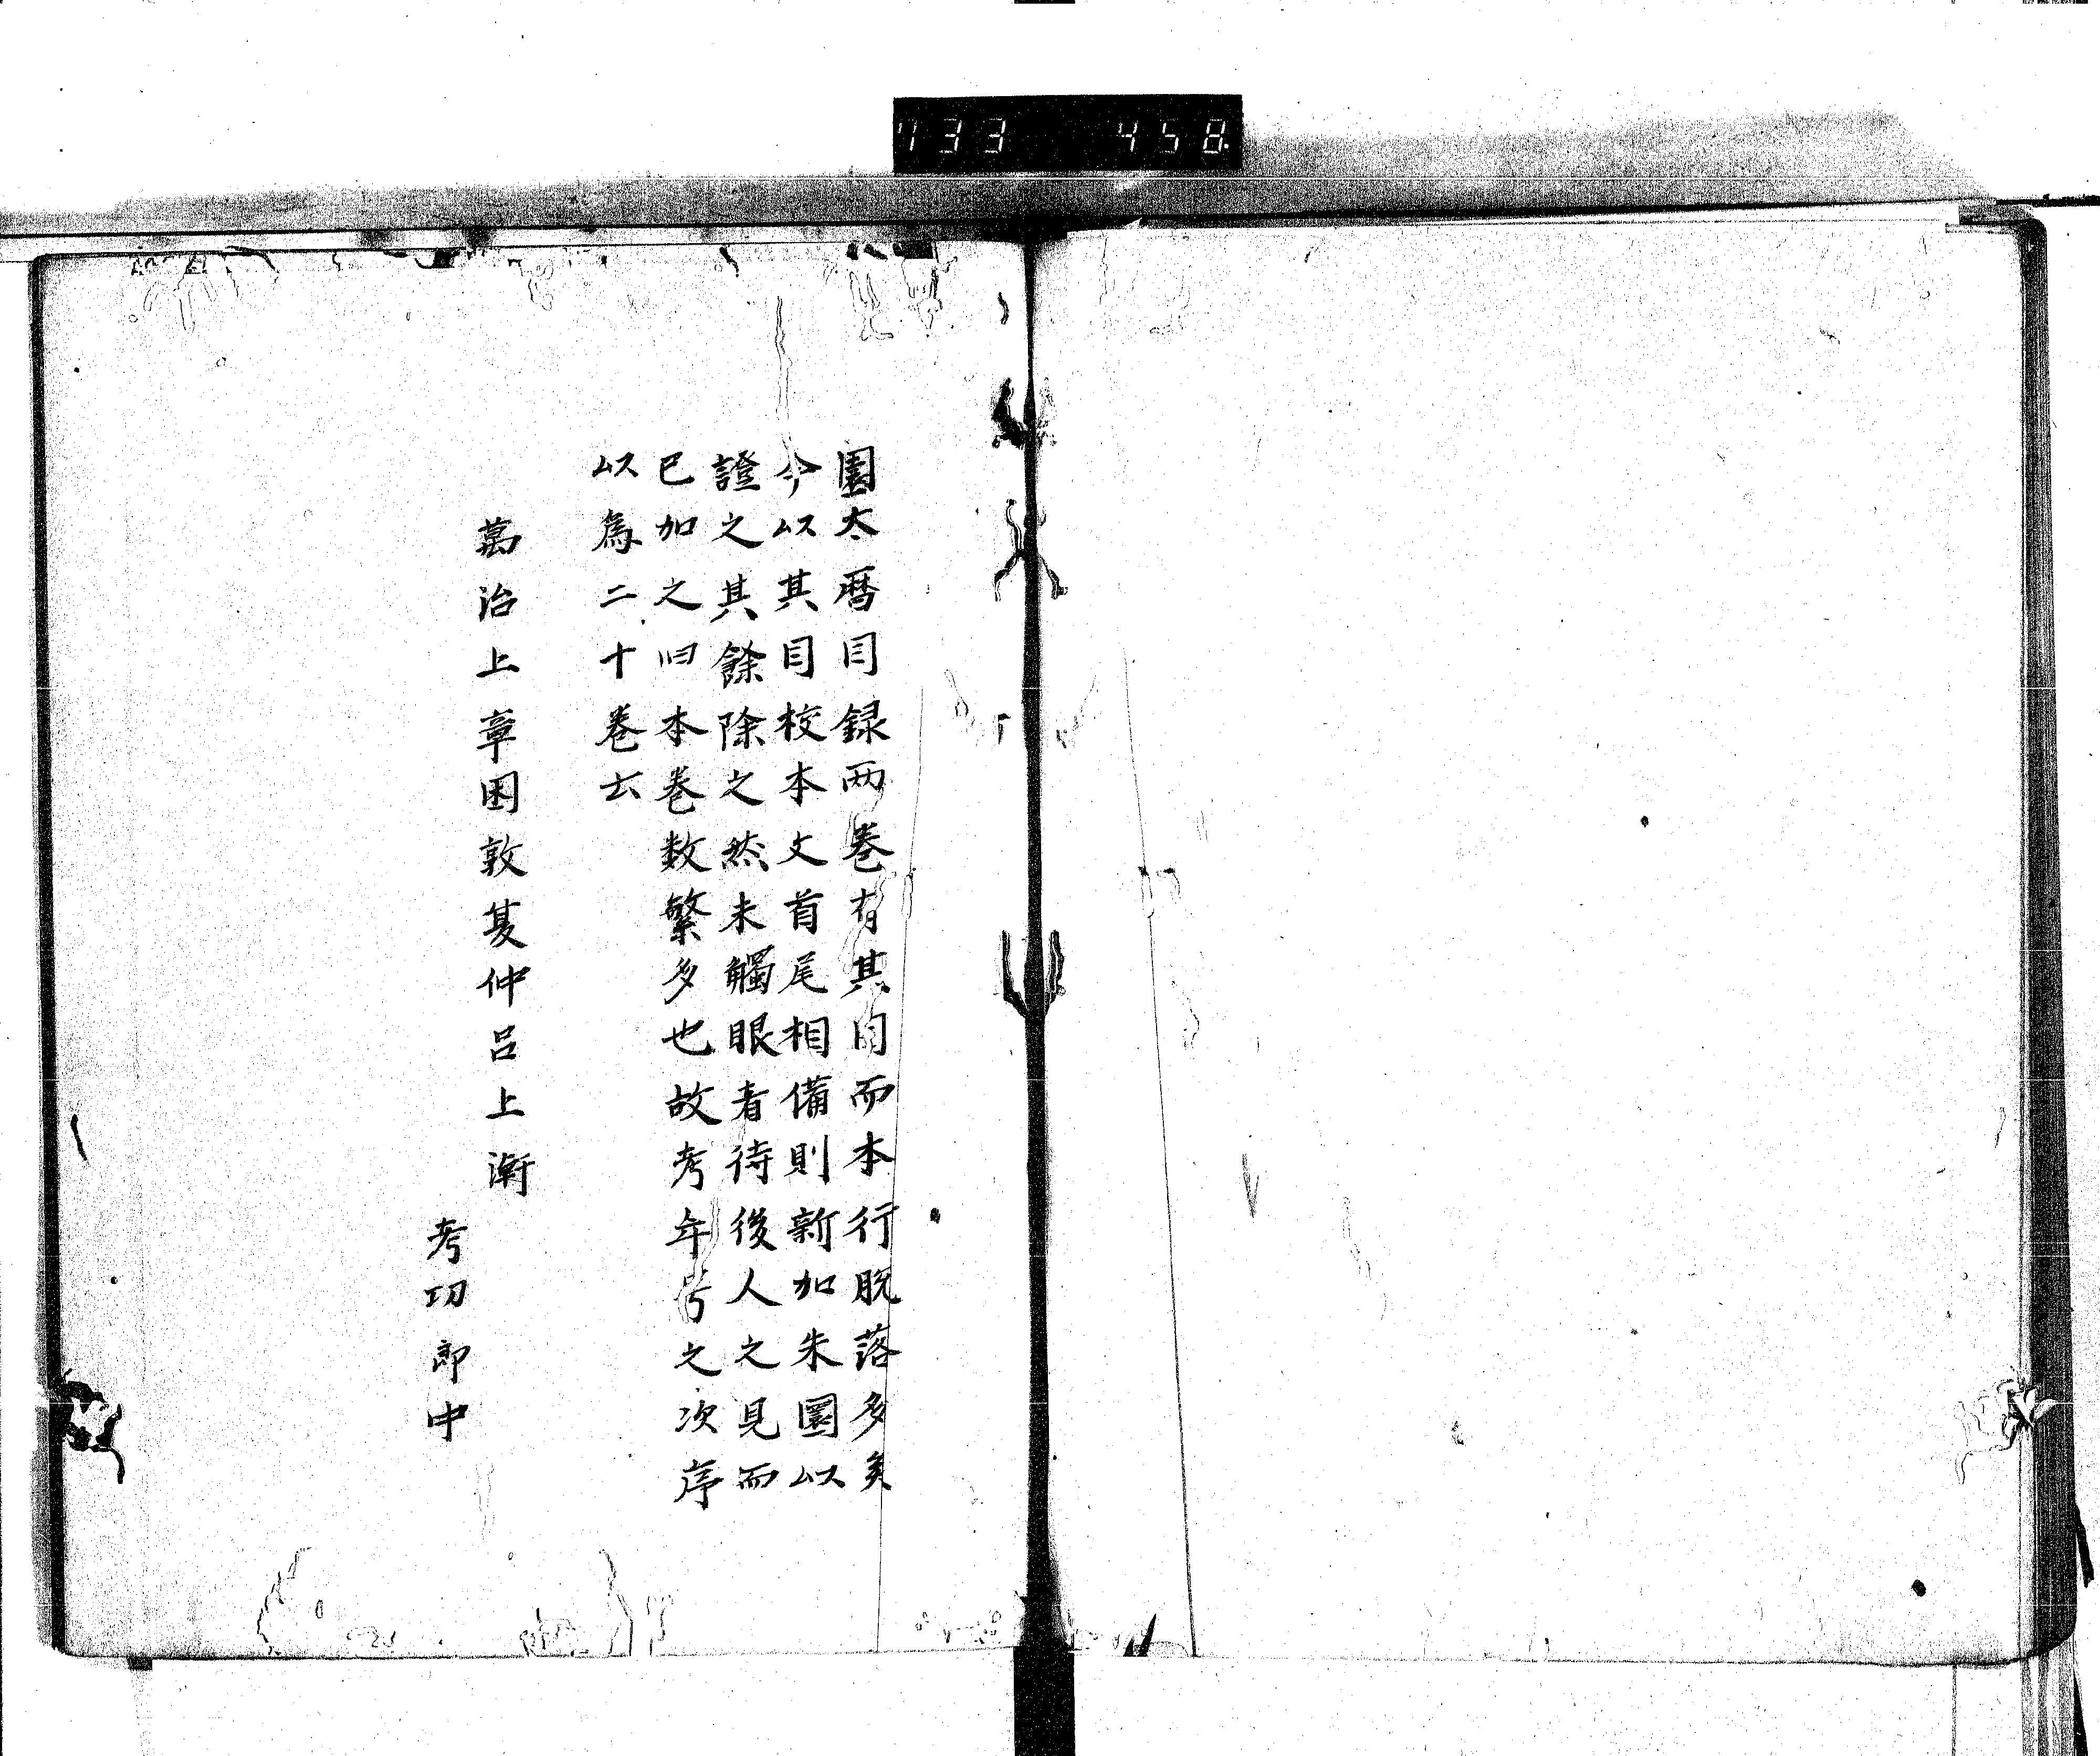 733 458
園太暦目録两巻有其目而本行脱落多矣
今以其目校本文首尾相備則新加朱圏以
證之其餘除之然未觸眼者待後人之見而
已加之旧本巻数繁多也故考年号之次序
以為二十巻云
萬治上章困敦夏仲呂上澣
考功郎中